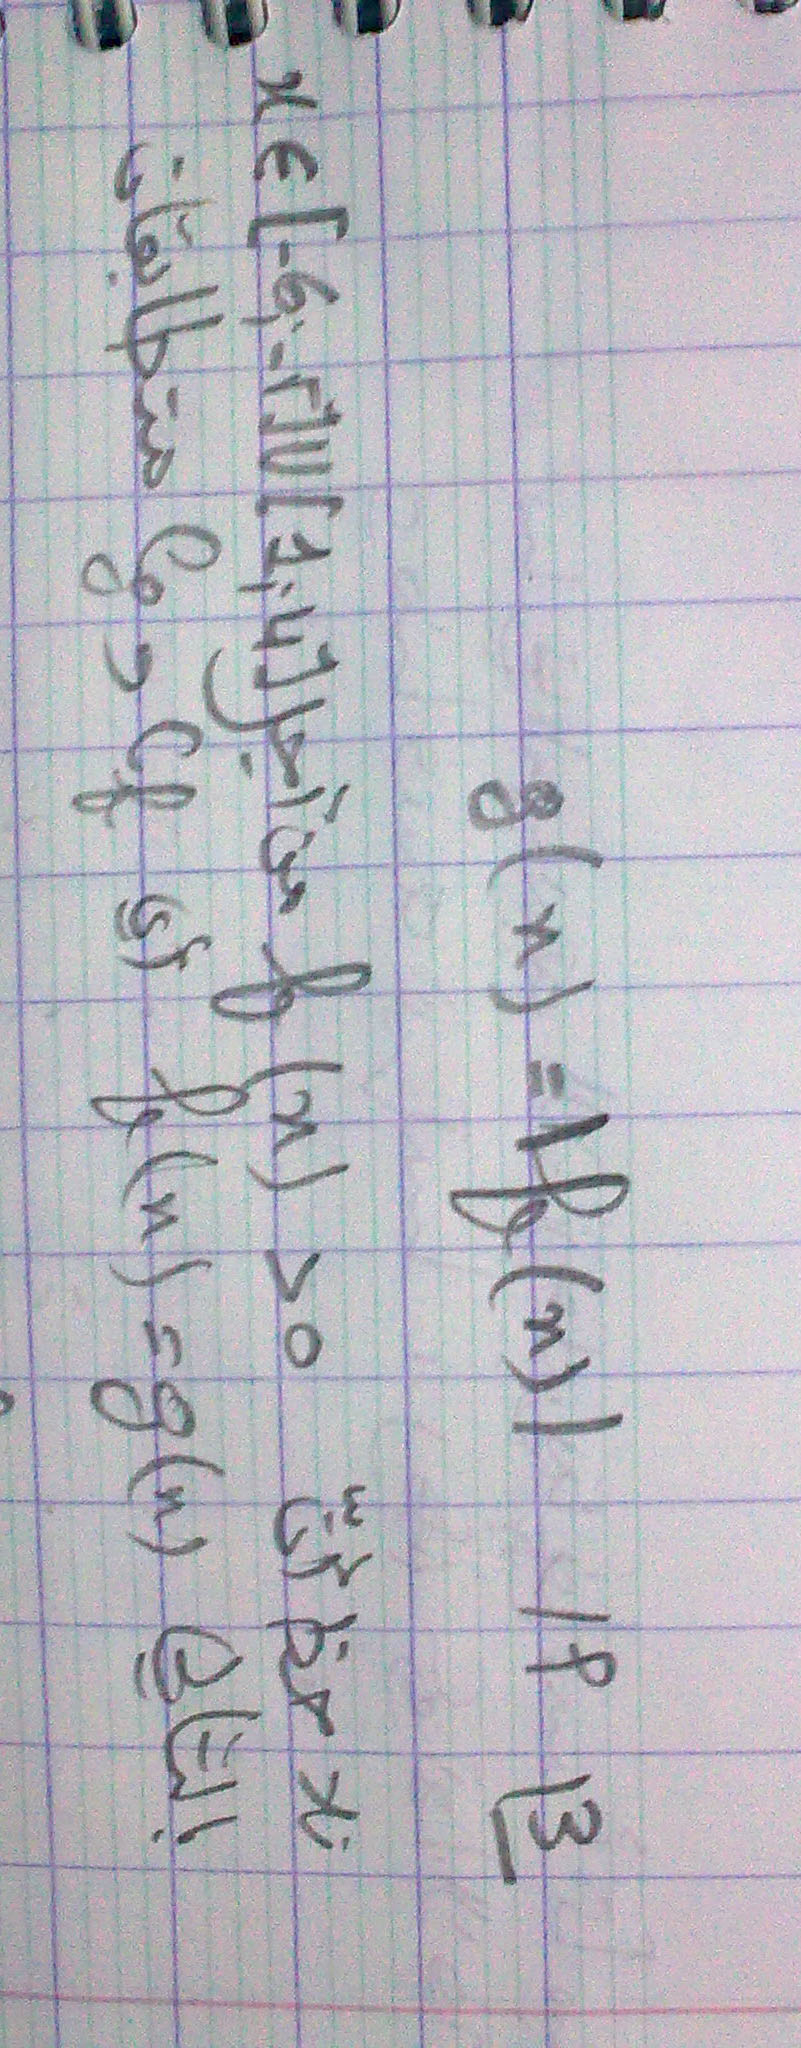 3 م/ g(x) = |f(x)|
نلاحظ أن f(x) > 0 من أجل x ∈ [-6; -2] ∪ [1; 4]
إذن f(x) = g(x) أي Cf و Cg متطابقان